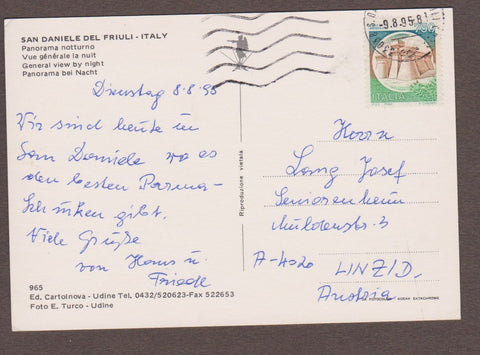 SAN DANIELE DEL FRIULI - ITALY
Panorama notturno
Vue générale la nuit
General view by night
Panorama bei Nacht
Dienstag 8.8.95
Wir sind heute in
San Daniele wo es
den besten Parma-
schinken gibt.
Viele Grüße
von Hans u.
Friedl
965
Ed. Cartoinova - Udine Tel. 0432/520623-Fax 522653
Foto E. Turco - Udine
Riproduzione vietata
-9.8.95
750
ITALIA
Herrn
Lang Josef
Seniorenheim
A-4020 LINZ/D.
Austria